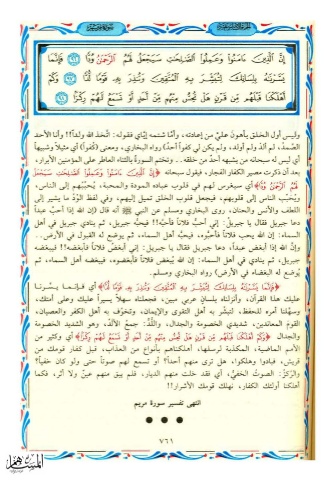 إِنَّ الَّذِينَ ءَامَنُوا وَعَمِلُوا الصَّالِحَاتِ سَيَجْعَلُ لَهُمُ الرَّحْمَٰنُ وُدًّا ﴿٩٦﴾ فَإِنَّمَا
يَسَّرْنَاهُ بِلِسَانِكَ لِتُبَشِّرَ بِهِ الْمُتَّقِينَ وَتُنذِرَ بِهِ قَوْمًا لُّدًّا ﴿٩٧﴾ وَكَمْ
أَهْلَكْنَا قَبْلَهُم مِّن قَرْنٍ هَلْ تُحِسُّ مِنْهُم مِّنْ أَحَدٍ أَوْ تَسْمَعُ لَهُمْ رِكْزًا ﴿٩٨﴾
وليس أول الخلق بأهون عليَّ من إعادته، وأمّا شتمه إيَّاي فقوله: اتَّخذ الله ولداً!! وأنا الأحد
الصَّمدُ، لم ألدْ ولم أولد، ولم يكن لي كفواً أحدٌ) رواه البخاري، ومعنى (كُفواً) أي مثيلاً وشبيهاً
أي ليس له سبحانه من يشبهه أحدٌ من خلقه.. وتختم السورةُ بالثناء العاطر على المؤمنين الأبرار،
بعد أن ذكرت مصير الكفار الفجار، فيقول سبحانه ﴿إِنَّ الَّذِينَ ءَامَنُوا وَعَمِلُوا الصَّالِحَاتِ سَيَجْعَلُ
لَهُمُ الرَّحْمَٰنُ وُدًّا﴾ أي سيغرس لهم في قلوب عباده المودة والمحبة، يُحبّبُهم إلى الناس،
ويُحبّب الناس إلى قلوبهم، فيجعل قلوب الخلق تميل إليهم، وفي لفظ الوُدّ ما يشير إلى
اللطف والأنس والحنان، روى البخاري ومسلم عن النبي ﷺ أنه قال (إن الله إذا أحبَّ عبداً
دعا جبريل فقال يا جبريلُ: إني أحبُّ فلاناً فأحبَّه!! فيحبُّه جبريل، ثم ينادي في أهل
السماء: إن الله يحب فلاناً فأحبُّوه، فيحبُّه أهل السماء، ثم يوضع له القبول في الأرض..
وإنَّ الله إذا أبغض عبداً، دعا جبريل فقال يا جبريل: إني أبغض فلاناً فأبغضه!! فيبغضه
جبريل، ثم ينادي في أهل السماء: إن الله يُبغض فلاناً فأبغضوه، فيبغضه أهل السماء، ثم
يُوضع له البغضاء في الأرض) رواه البخاري ومسلم.
﴿فَإِنَّمَا يَسَّرْنَاهُ بِلِسَانِكَ لِتُبَشِّرَ بِهِ الْمُتَّقِينَ وَتُنذِرَ بِهِ قَوْمًا لُّدًّا﴾ أي فإنما يسَّرنا
عليك هذا القرآن، وأنزلناه بلسانٍ عربي مبين، فجعلناه سهلاً يسيراً عليك وعلى أمتك،
وسهَّلنا أمره للحفظ، لتبشّر به أهل التقوى والإيمان، وتخوّف به أهل الكفر والعصيان،
القوم المعاندين، شديدي الخصومة والجدال، واللُّدُّ: جمعُ الألدّ، وهو الشديد الخصومة
والجدال ﴿وَكَمْ أَهْلَكْنَا قَبْلَهُم مِّن قَرْنٍ هَلْ تُحِسُّ مِنْهُم مِّنْ أَحَدٍ أَوْ تَسْمَعُ لَهُمْ رِكْزًا﴾ أي وكثير من
الأمم الماضية، المكذبة لرسلها، أهلكناهم بأنواع من العذاب، قبل كفار قومك من
قريش، فبادوا وهلكوا، هل ترى منهم أحداً؟ أو تسمع لهم صوتاً حتى ولو كان خفياً؟
والرّكزُ: الصوتُ الخفيُّ، أي فقد خلت منهم الديار، فلم يبق منهم عينٌ ولا أثر، فكما
أهلكنا أولئك الكفار، نهلك قومك الأشرار!!
انتهى تفسير سورة مريم
٧٦١